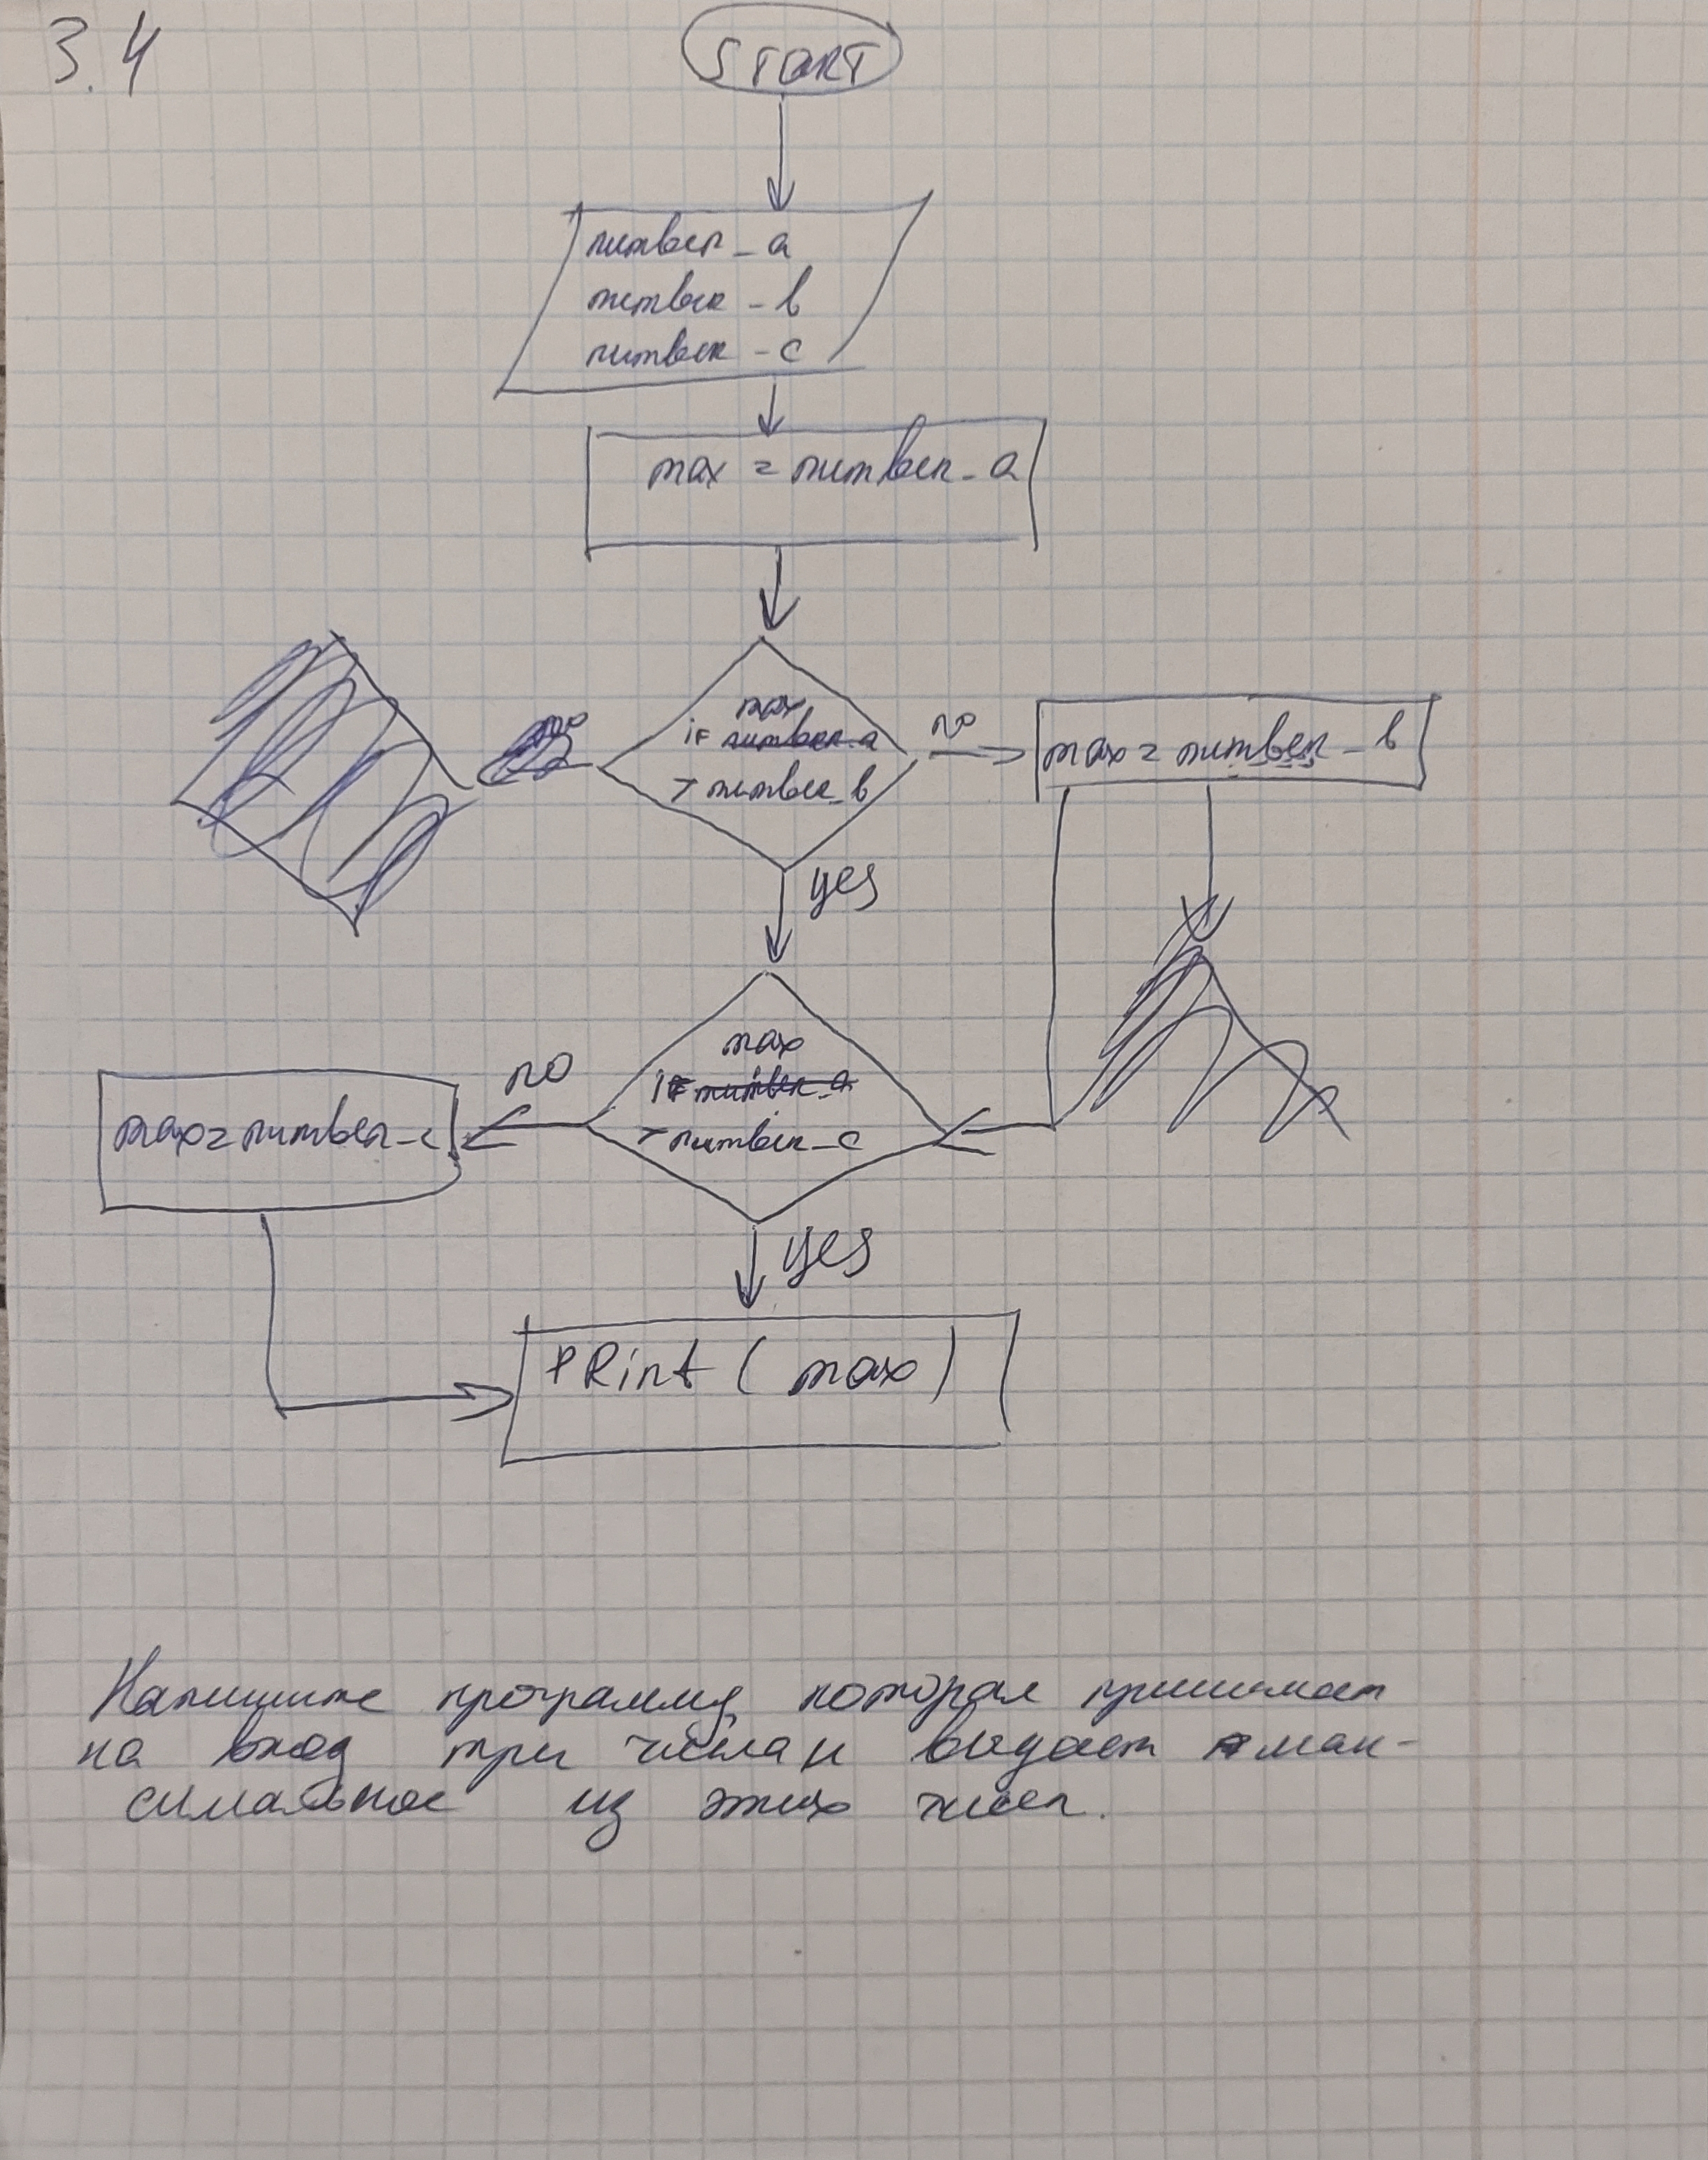 3.4
START
number_a
number_b
number_c
max = number_a
max
if number_a
> number_b
no
max = number_b
yes
max
if number_a
> number_c
no
max = number_c
yes
PRint (max)
Напишите программу, которая принимает
на вход три числа и выдает мак-
симальное из этих чисел.